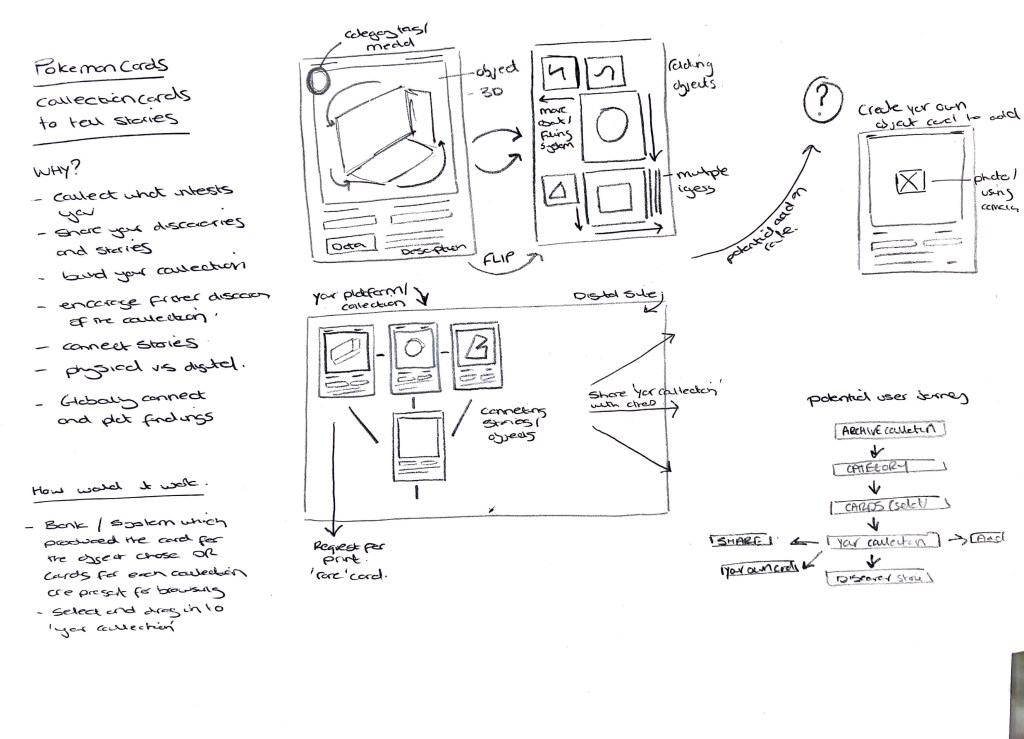 Pokemon Cards
collection cards
to tell stories
WHY?
- collect what intests
you
- share your discoveries
and stories
- build your collection
- encourage further
of the collection.
- connect stories
- physical vs digital.
- Globally connect
and plot findings
How would it work.
- Bank / system which
produced the card for
the object chose OR
cards for each collection
are present for browsing
- select and drag in to
'your collection'
category tag/
medal
object
- 3D
Data
Description
FLIP
folding
objects
more
about /
filing
system
multiple
potential add on
route.
?
Create your own
object card to add
photo/
using
camera
your platform/
collection
Digital Site
connecting
stories /
objects
share 'your collection'
with others
Request for
print.
'rare' card.
potential user journey
ARCHIVE collection
CATEGORY
CARDS (select)
your collection
SHARE
Add
your own cards
Discover story